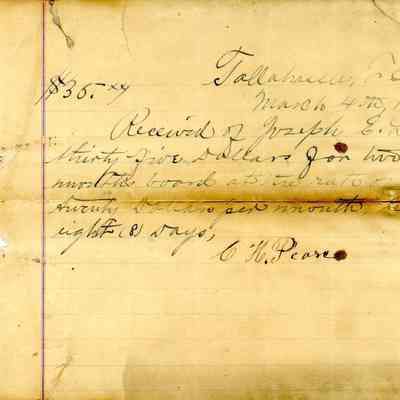 $35.xx
Tallahassee, Fl
March 4th, 1
Received of Joseph E.
thirty-five Dollars for two
months board at the rate
twenty Dollars per month le
eight (8) Days,
C H. Pearce